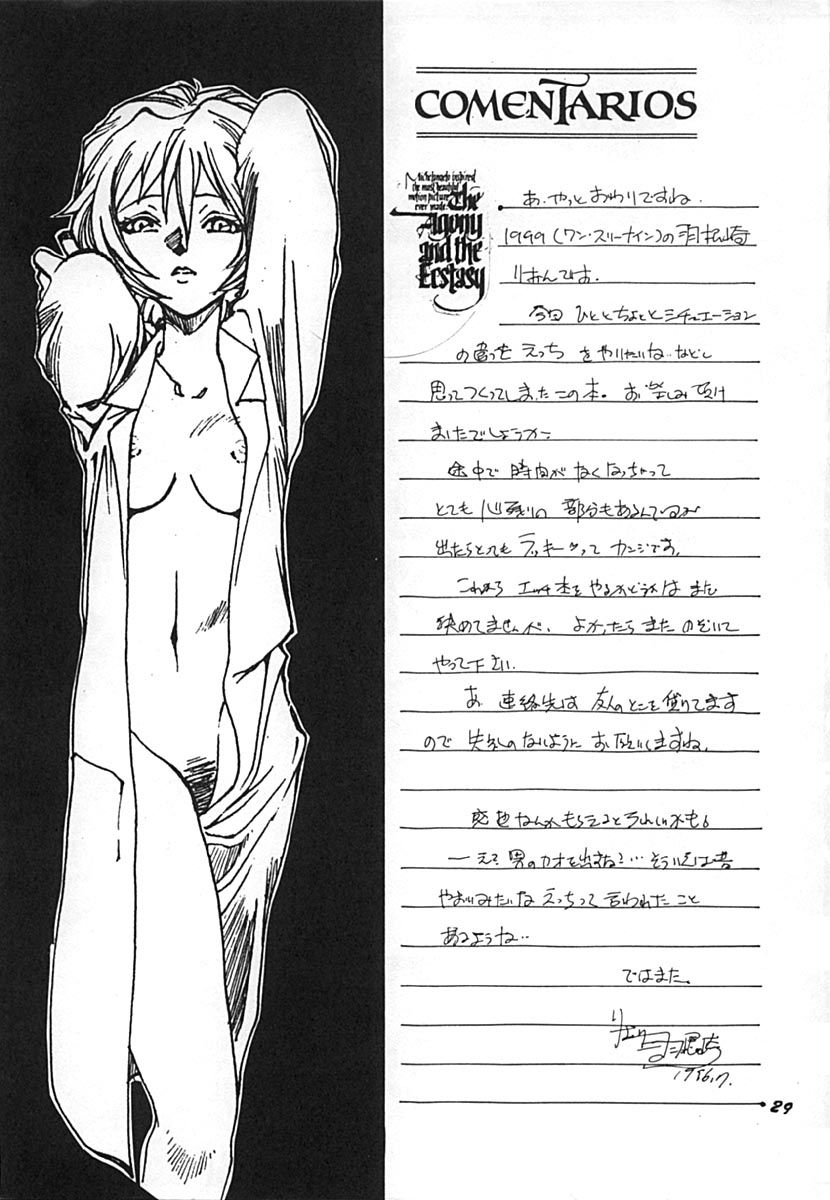 COMENTARIOS
Michelangelo inspired
the most beautiful
motion picture
ever made.
The
Agony
and the
Ecstasy
あ、やっとおわりですね.
1999 (ワン・スリーナイン)の
りおんです.
今回 ひととちょっとシチュエーション
の違った えっち をやりたいな…などと
思ってつくってしまったこの本。お楽しみ頂け
ましたでしょうか
途中で 時間が なくなっちゃって
とても 心残りの 部分もあるんですが
出たらとっても ラッキーって カンジです。
これから エッチ本をやるかどうかは まだ
決めてませんが、よかったら また のぞいて
やって下さい.
あ 連絡先は 友人のとこを借りてます
ので 失礼のないように お願いしますね。
感想なんかもらえるとうれしいかも。
やおいみたいな えっちって 言われたこと
あるような…
ではまた。
29